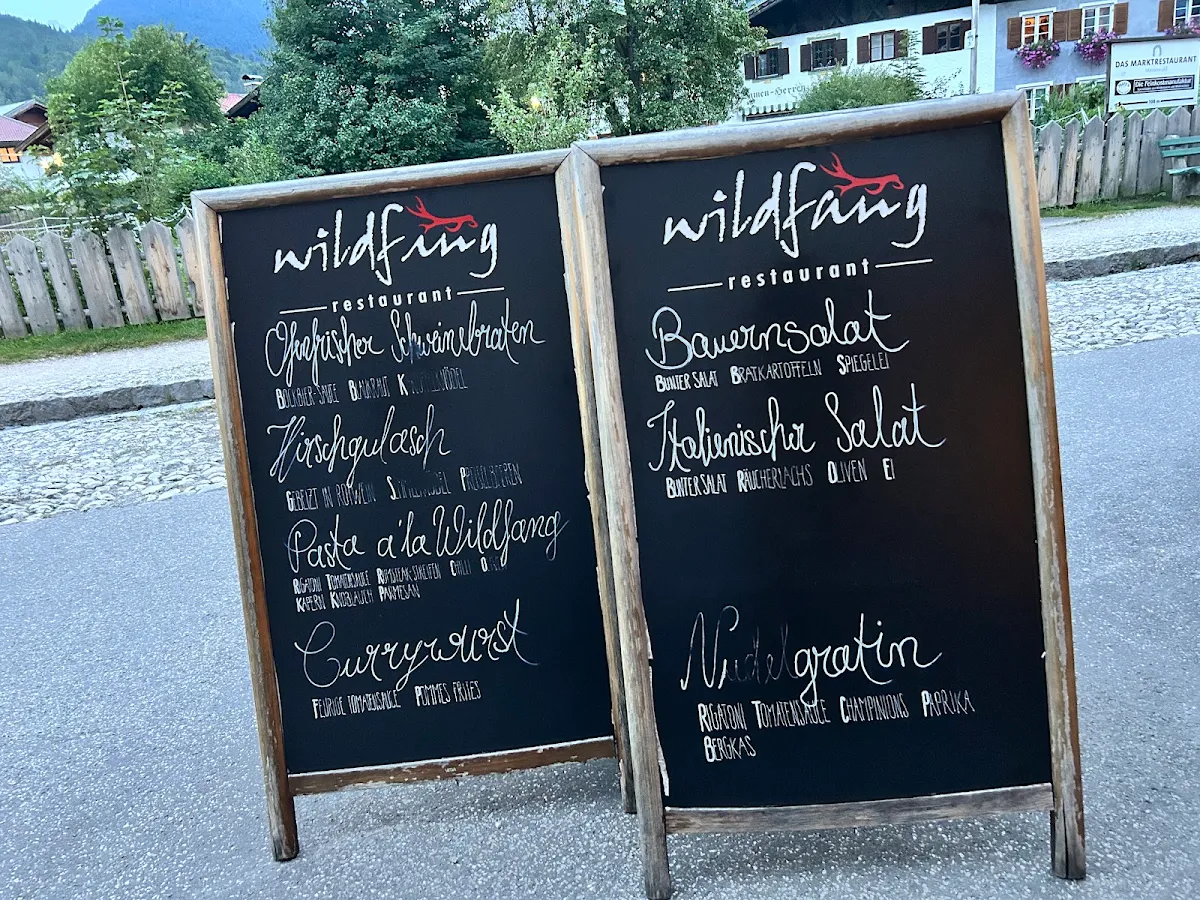 wildfang
restaurant
Ofenfrischer Schweinebraten
BOCKBIER-SAUCE BLAUKRAUT KARTOFFELKNÖDEL
Hirschgulasch
GEBEIZT IN ROTWEIN SEMMELKNÖDEL PREISELBEEREN
Pasta a'la Wildfang
RIGATONI TOMATENSAUCE RUMSTEAK-STREIFEN CHILLI
KAPERN KNOBLAUCH PARMESAN
Currywurst
FEURIGE TOMATENSAUCE POMMES FRITES
wildfang
restaurant
Bauernsalat
BUNTER SALAT BRATKARTOFFELN SPIEGELEI
Italienischer Salat
BUNTER SALAT RÄUCHERLACHS OLIVEN EI
Nudelgratin
RIGATONI TOMATENSAUCE CHAMPINIONS PAPRIKA
BERGKAS
DAS MARKTRESTAURANT